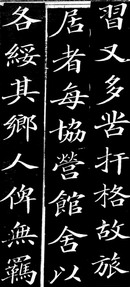 習又多岩扞格故旅
居者每協營館舍以
各綏其鄉人俾無羈